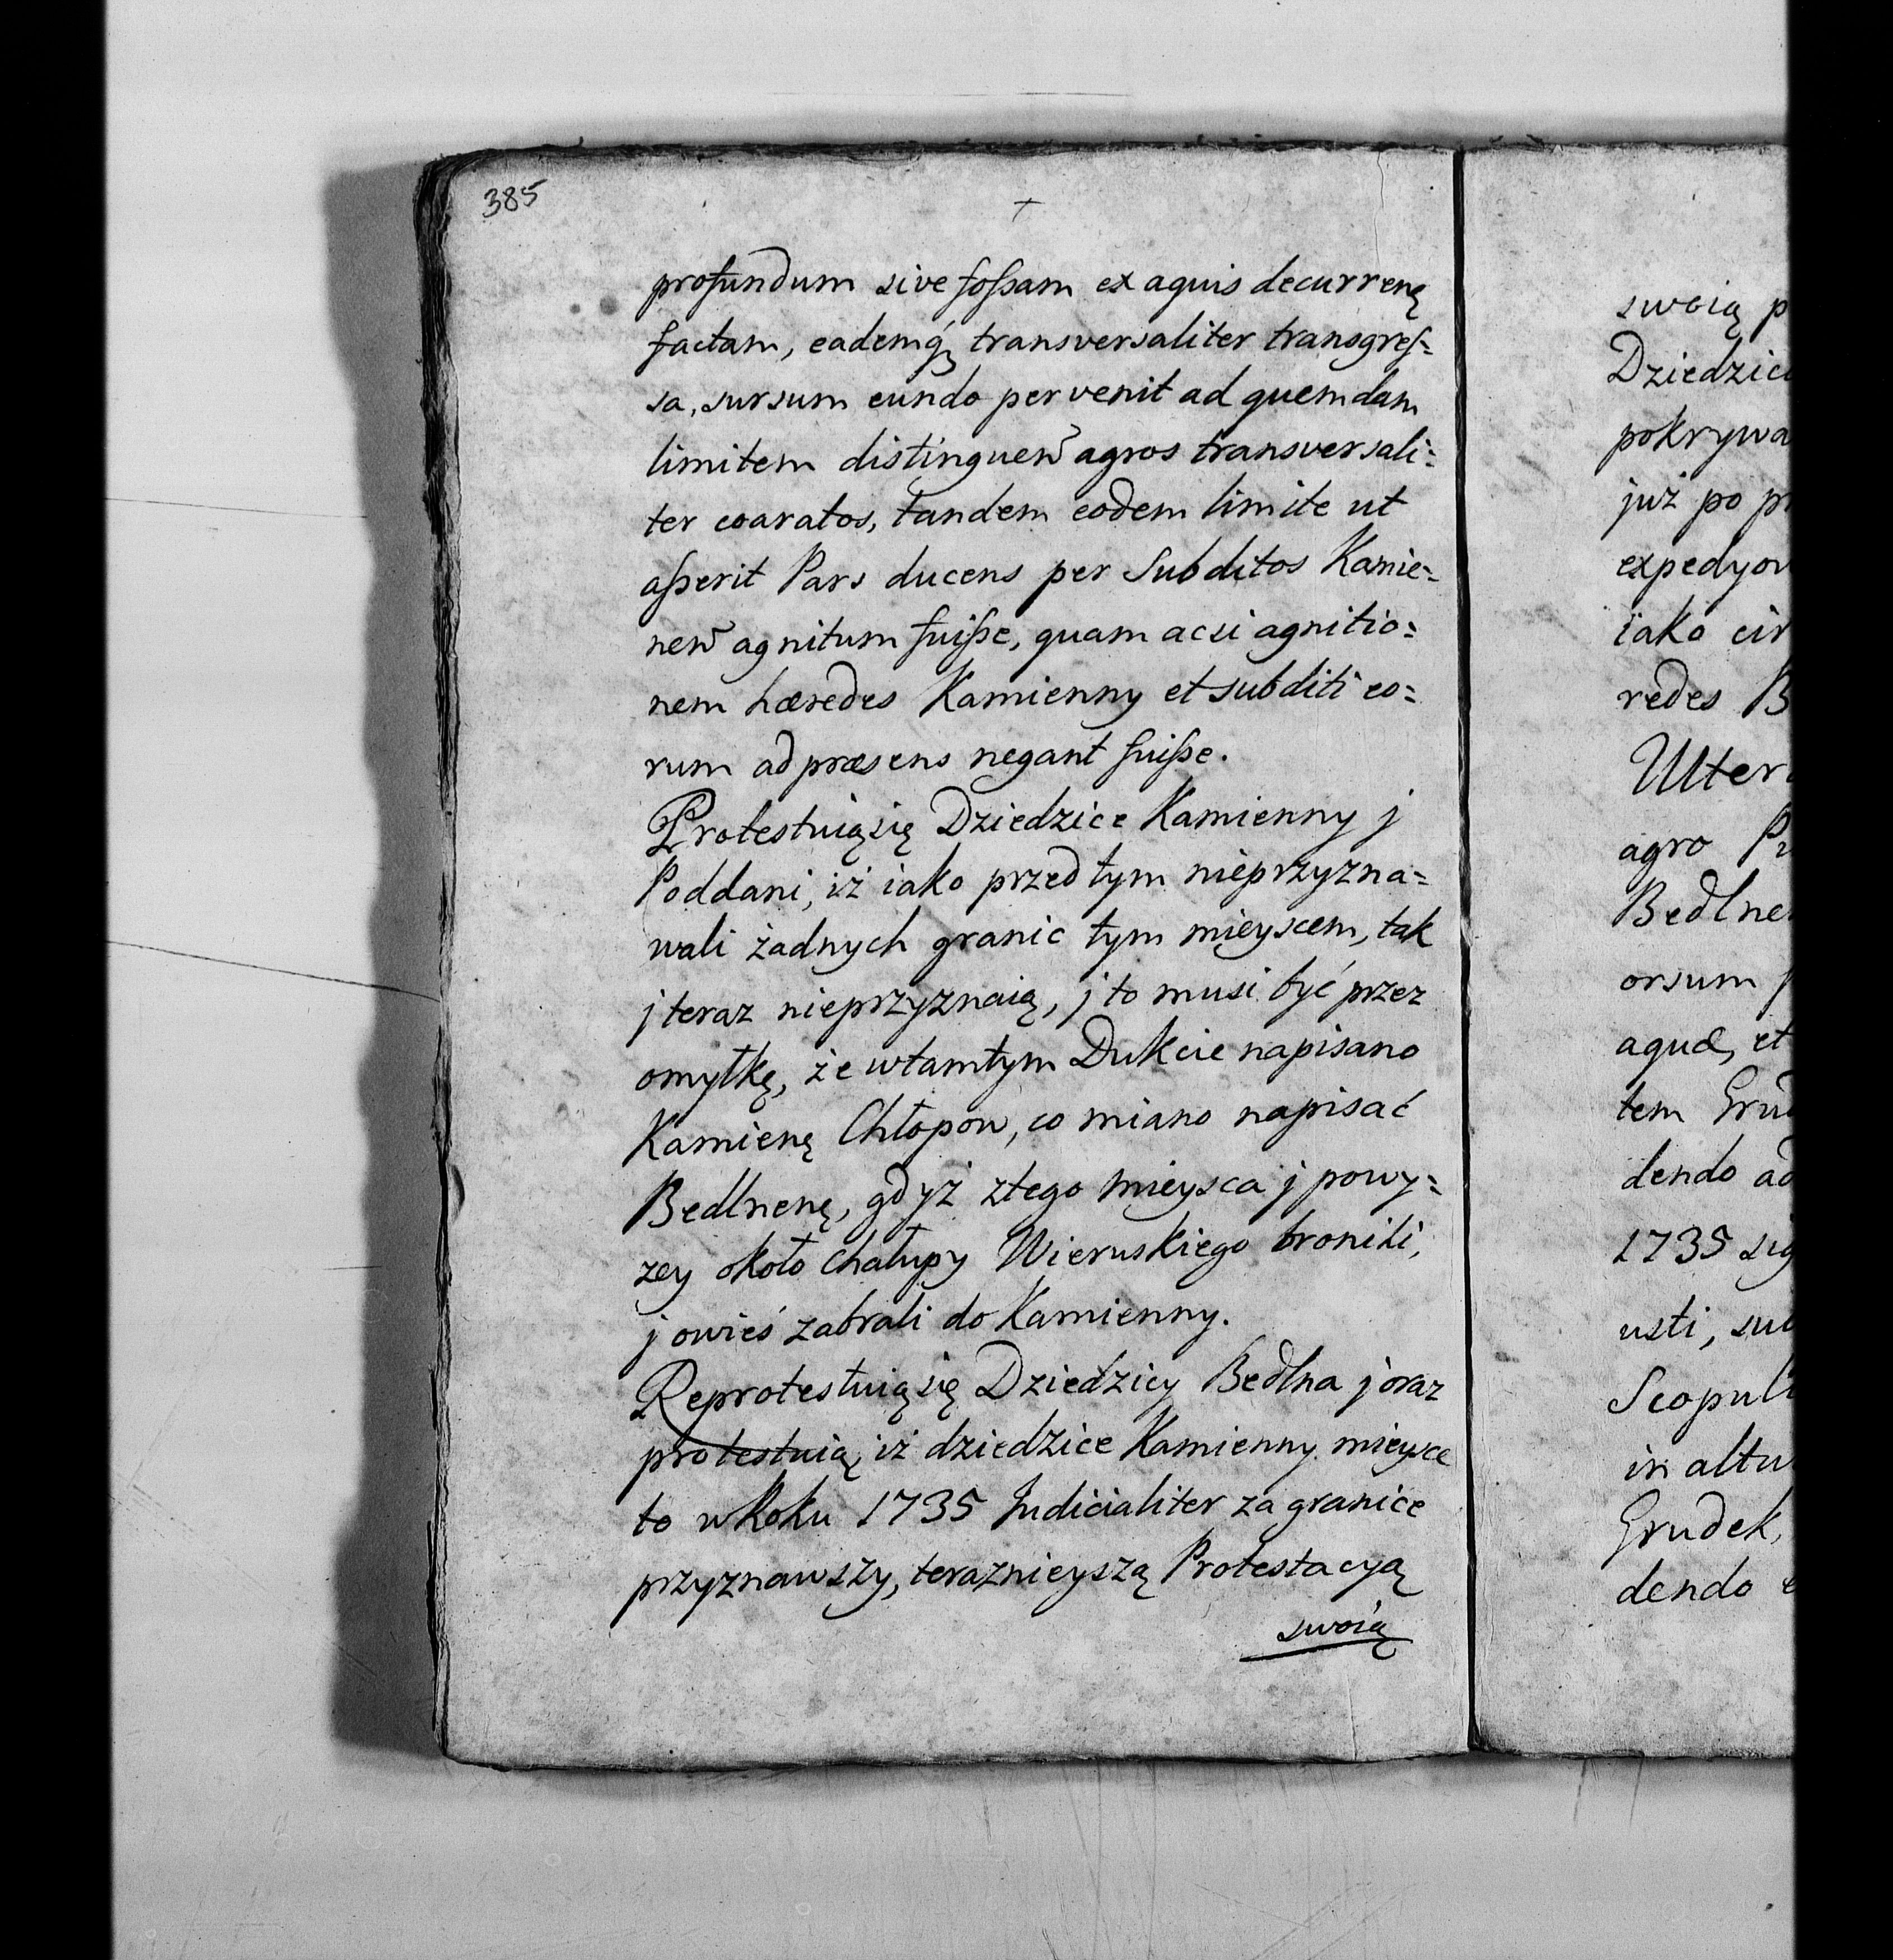 385
profundum sive foſsam ex aquis decurrenę
factam, eademq́ȝ transversaliter transgreſ=
sa, sursum eundo pervenit ad quemdam
limitem distinguen̄ agros transversali=
ter coaratos, tandem eodem limite ut
aſserit Pars ducens per Subditos Kamie=
nen̄ agnitum fuiſse, quam acsi agnitio=
nem hæredes Kamienny et subditi eo=
rum ad præsens negant fuiſse.
Protestuią się Dziedzice Kamienny j
Poddani, iż iako przed tym nieprzyzna=
wali żadnych granic tym mieyscem, tak
j teraz nieprzyznaią, j to musi być przez
omyłkę, że wtamtym Dukcie napisano
Kamienę Chłopow, co miano napisać
Bedlnenę, gdyż ztego mieysca j powy=
zey około chałupy Wieruskiego bronili,
j owieś zabrali do Kamienny.
Reprotestuią się Dziedzicy Bedlna j oraz
protestuią, iż dziedzice Kamienny mieysce
to w Roku 1735 Judicialiter za granice
przyznawszy, teraznieyszą Protestacyą
swoią
swoią p
Dziedzic
pokrywa
już po pr
expedyow
iako cir
redes B
Ulter
agro Pr
Bedlne
orsum
aquæ, et
tem Grud
dendo ad
1735 sig
usti, sub
Scopul
in altu
Grudek,
dendo e